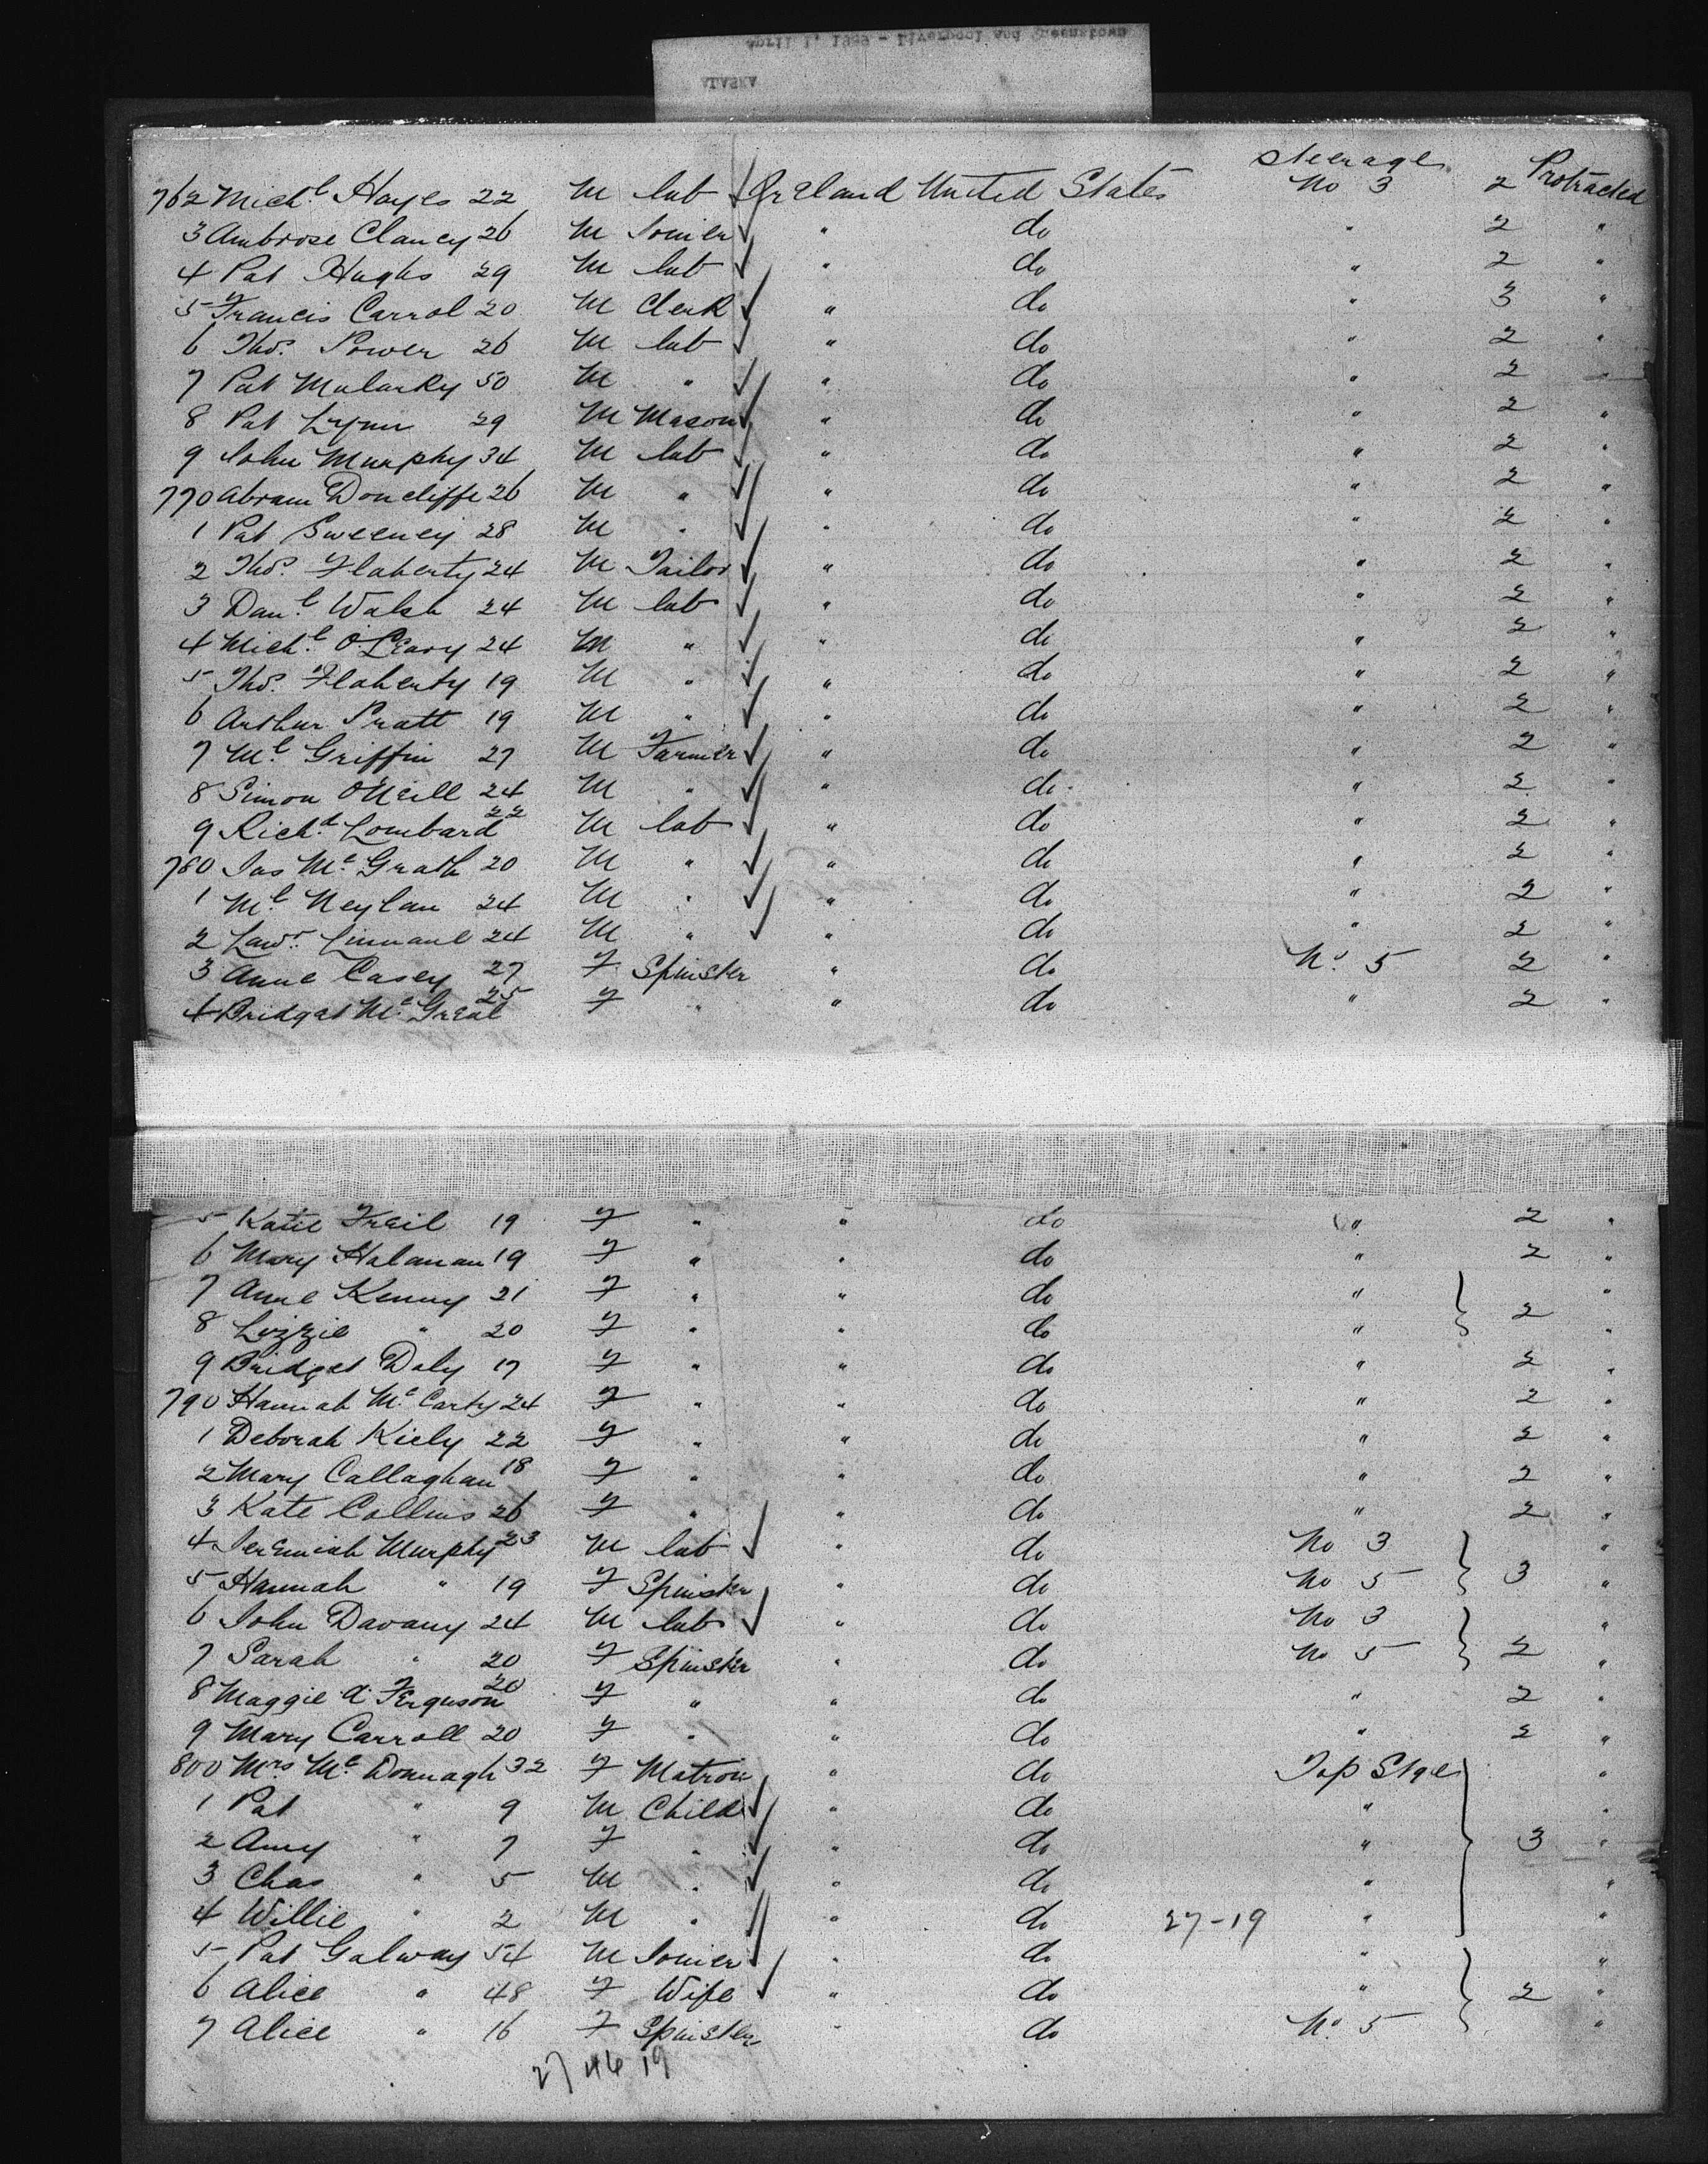 April 1, 1889 - Liverpool and Queenstown
ALASKA
Steerage
762 Michl Hayes 22 M lab Ireland United States No 3 2 Protracted
3 Ambrose Clancy 26 M Joiner " do " 2 "
4 Pat Hughs 29 M lab " do " 2 "
5 Francis Carrol 20 M Clerk " do " 3 "
6 Thos. Power 26 M lab " do " 2 "
7 Pat Mularky 50 M " " do " 2 "
8 Pat Lynn 29 M Mason " do " 2 "
9 John Murphy 34 M lab " do " 2 "
770 Abram Doncliffe 26 M " " do " 2 "
1 Pat Sweeney 28 M " " do " 2 "
2 Thos. Flaherty 24 M Tailor " do " 2 "
3 Danl. Walsh 24 M lab " do " 2 "
4 Michl. O'Leary 24 M " " do " 2 "
5 Thos. Flaherty 19 M " " do " 2 "
6 Arthur Pratt 19 M " " do " 2 "
7 Ml Griffin 27 M Farmer " do " 2 "
8 Simon O'Neill 24 M " " do " 2 "
9 Richd. Lombard 22 M lab " do " 2 "
780 Jas McGrath 20 M " " do " 2 "
1 Ml Neylan 24 M " " do " 2 "
2 Lawr. 24 M " " do " 2 "
3 Anne Casey 27 F Spinster " do No. 5 2
4 Bridget McGreal 25 F " " do " 2 "
5 Katie Freil 19 F " " do " 2 "
6 Mary Halanan 19 F " " do " 2 "
7 Anne Kenny 21 F " " do " "
8 Lizzie " 20 F " " do " 2 "
9 Bridget Daly 17 F " " do " 2 "
790 Hannah McCarty 24 F " " do " 2 "
1 Deborah Kiely 22 F " " do " 2 "
2 Mary Callaghan 18 F " " do " 2 "
3 Kate Collins 26 F " " do " 2 "
4 Jeremiah Murphy 23 M lab " do No 3 "
5 Hannah " 19 F Spinster " do No 5 3 "
6 John Davany 24 M lab " do No 3 "
7 Sarah " 20 F Spinster " do No 5 2 "
8 Maggie A. Ferguson 20 F " " do " 2 "
9 Mary Carroll 20 F " " do " 2 "
800 Mrs McDonnagh 32 F Matron " do Top Stge "
1 Pat " 9 M Child " do " "
2 Amy " 7 F " " do " 3 "
3 Chas " 5 M " " do " "
4 Willie " 2 M " " do 27-19 " "
5 Pat Galway 54 M Joiner " do " "
6 Alice " 48 F Wife " do " 2 "
7 Alice " 16 F Spinster " do No. 5 "
27 46 19